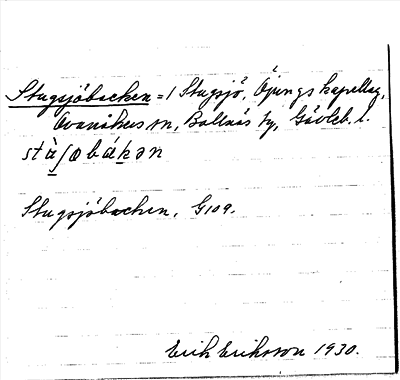 Stugsjöbacken = / Stugsjö, Öjungs kapellag,
Ovanåkers sn, Bollnäs tg, Gävleb. l.
stàʃobákən
Stugsjöbacken, G109.
Erik Eriksson 1930.